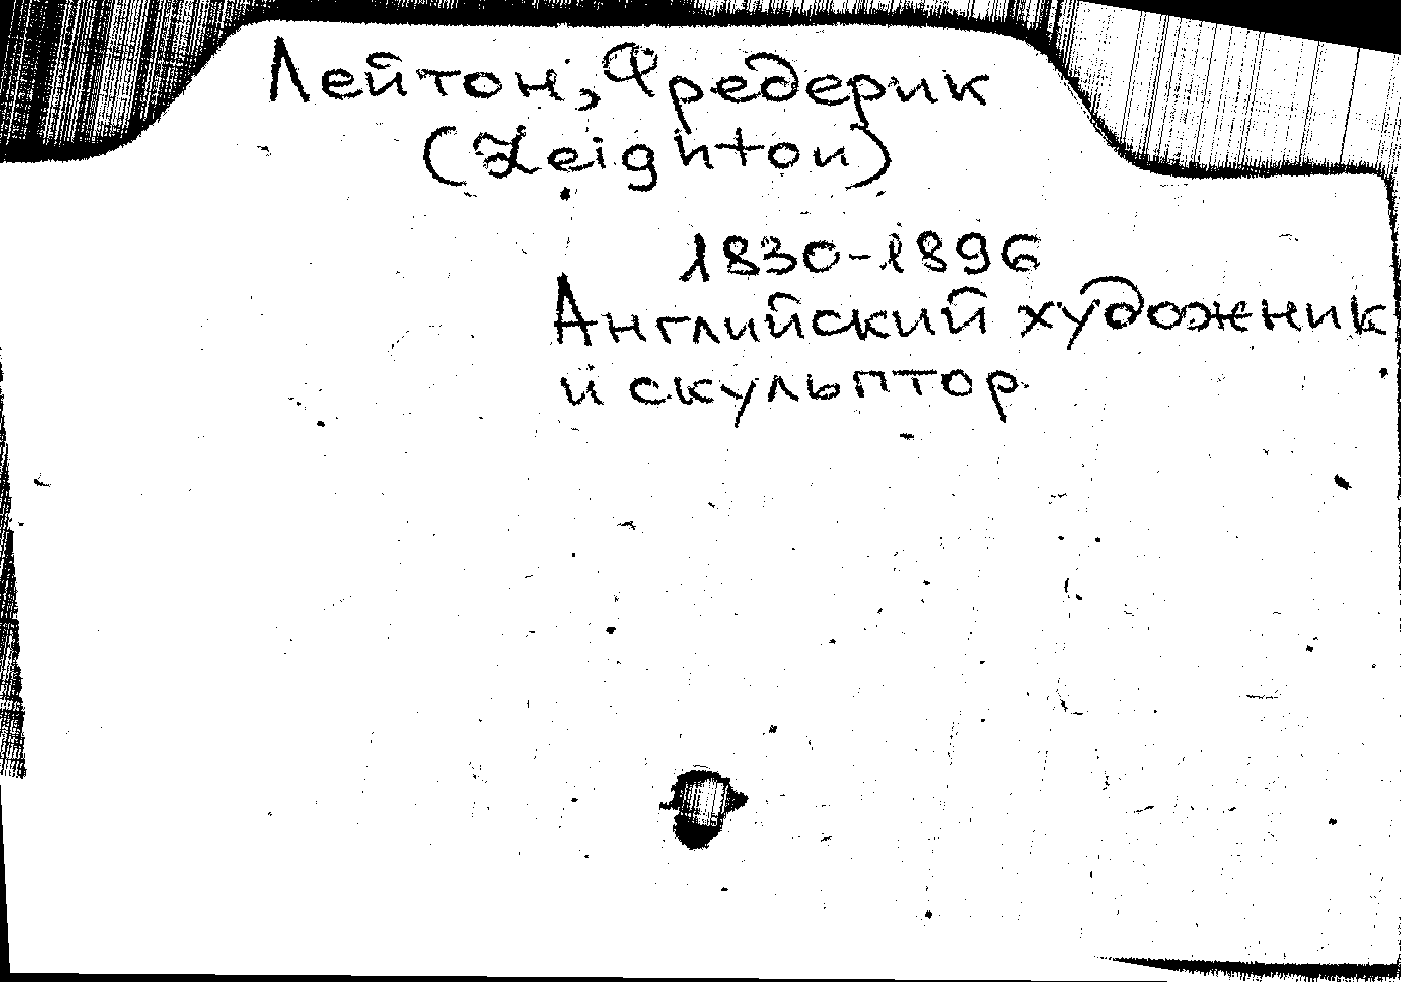 Лейтон, Фредерик
(Leighton)
1830-1896
Английский художник
и скульптор